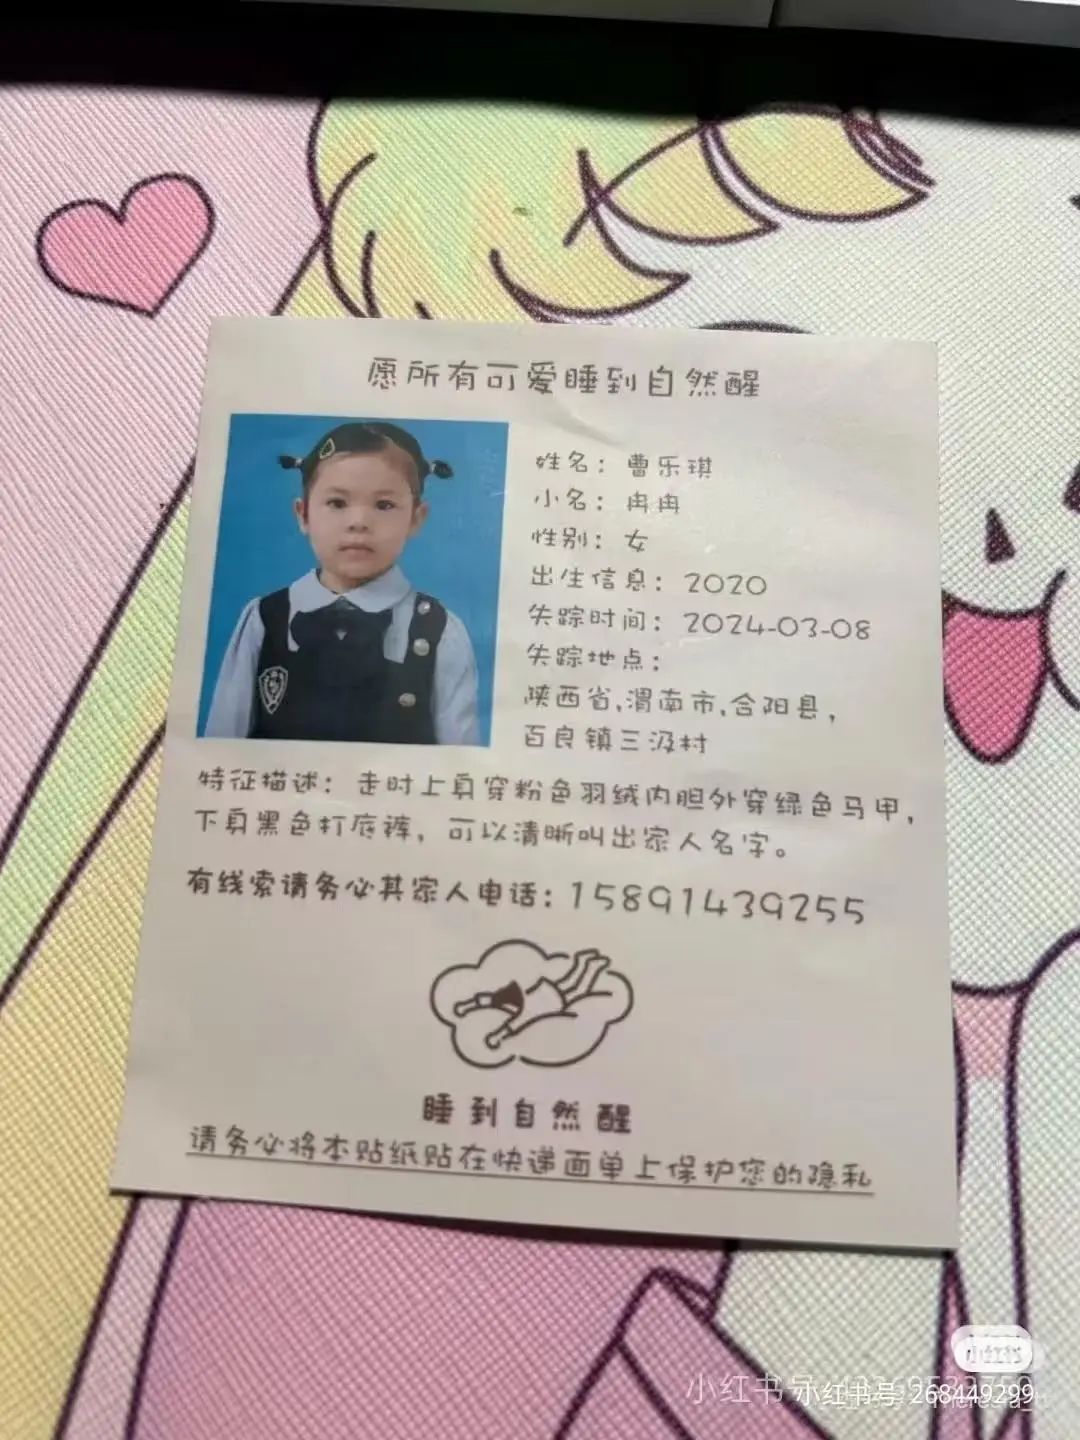 愿所有可爱睡到自然醒
姓名：曹乐琪
小名：冉冉
性别：女
出生信息：2020
失踪时间：2024-03-08
失踪地点：
陕西省,渭南市,合阳县,
百良镇三汲村
特征描述：走时上身穿粉色羽绒内胆外穿绿色马甲，
下身黑色打底裤，可以清晰叫出家人名字。
有线索请务必其家人电话：15891439255
睡到自然醒
请务必将本贴纸贴在快递面单上保护您的隐私
小红书
小红书号 268449299